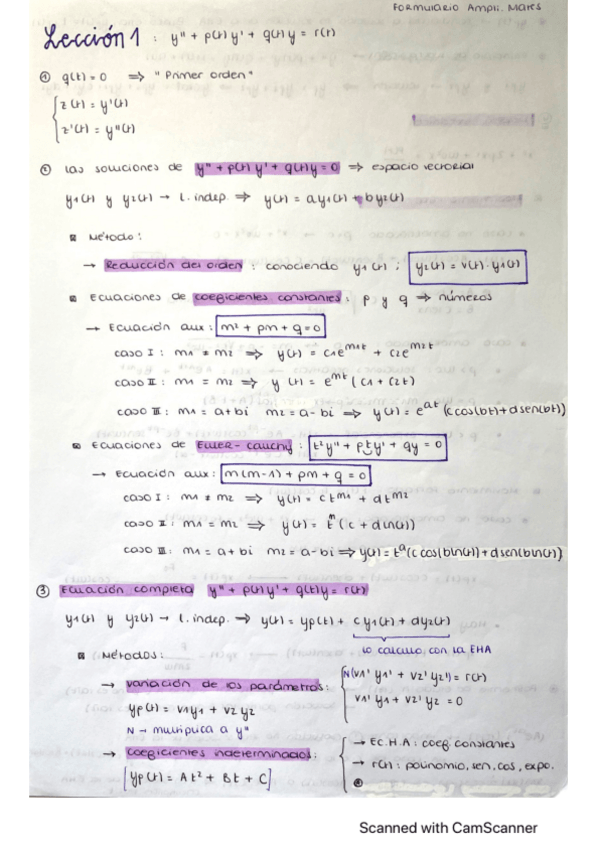 Formulario Ampli. Mates
Lección 1 : y'' + p(t) y' + q(t) y = r(t)
① q(t) = 0 ⇒ "Primer orden"
z(t) = y'(t)
z'(t) = y''(t)
② Las soluciones de y'' + p(t) y' + q(t) y = 0 ⇒ espacio vectorial
y1(t) y y2(t) → l. indep. ⇒ y(t) = a y1(t) + b y2(t)
Método:
→ Reducción del orden : conociendo y1(t) ; y2(t) = v(t) · y1(t)
Ecuaciones de coeficientes constantes : p y q → números
→ Ecuación aux : m² + pm + q = 0
caso I : m1 ≠ m2 ⇒ y(t) = c1e^m1t + c2e^m2t
caso II : m1 = m2 ⇒ y(t) = e^mt (c1 + c2t)
caso III : m1 = a+bi m2 = a-bi ⇒ y(t) = e^at (c cos(bt) + d sen(bt))
Ecuaciones de Euler-Cauchy : t²y'' + pty' + qy = 0
→ Ecuación aux : m(m-1) + pm + q = 0
caso I : m1 ≠ m2 ⇒ y(t) = ct^m1 + dt^m2
caso II : m1 = m2 ⇒ y(t) = t^m (c + d ln(t))
caso III : m1 = a+bi m2 = a-bi ⇒ y(t) = t^a (c cos(b ln(t)) + d sen(b ln(t)))
③ Ecuación completa y'' + p(t) y' + q(t) y = r(t)
y1(t) y y2(t) → l. indep. ⇒ y(t) = yp(t) + c y1(t) + d y2(t)
lo calculo con la EHA
Métodos :
→ variación de los parámetros :
N(v1' y1' + v2' y2') = r(t)
v1' y1 + v2' y2 = 0
yp(t) = v1y1 + v2y2
N → multiplica a y''
→ coeficientes indeterminados :
→ Ec. H.A : coef. constantes
→ r(t) : polinomio, sen, cos, expo.
[yp(t) = At² + Bt + C]
Scanned with CamScanner